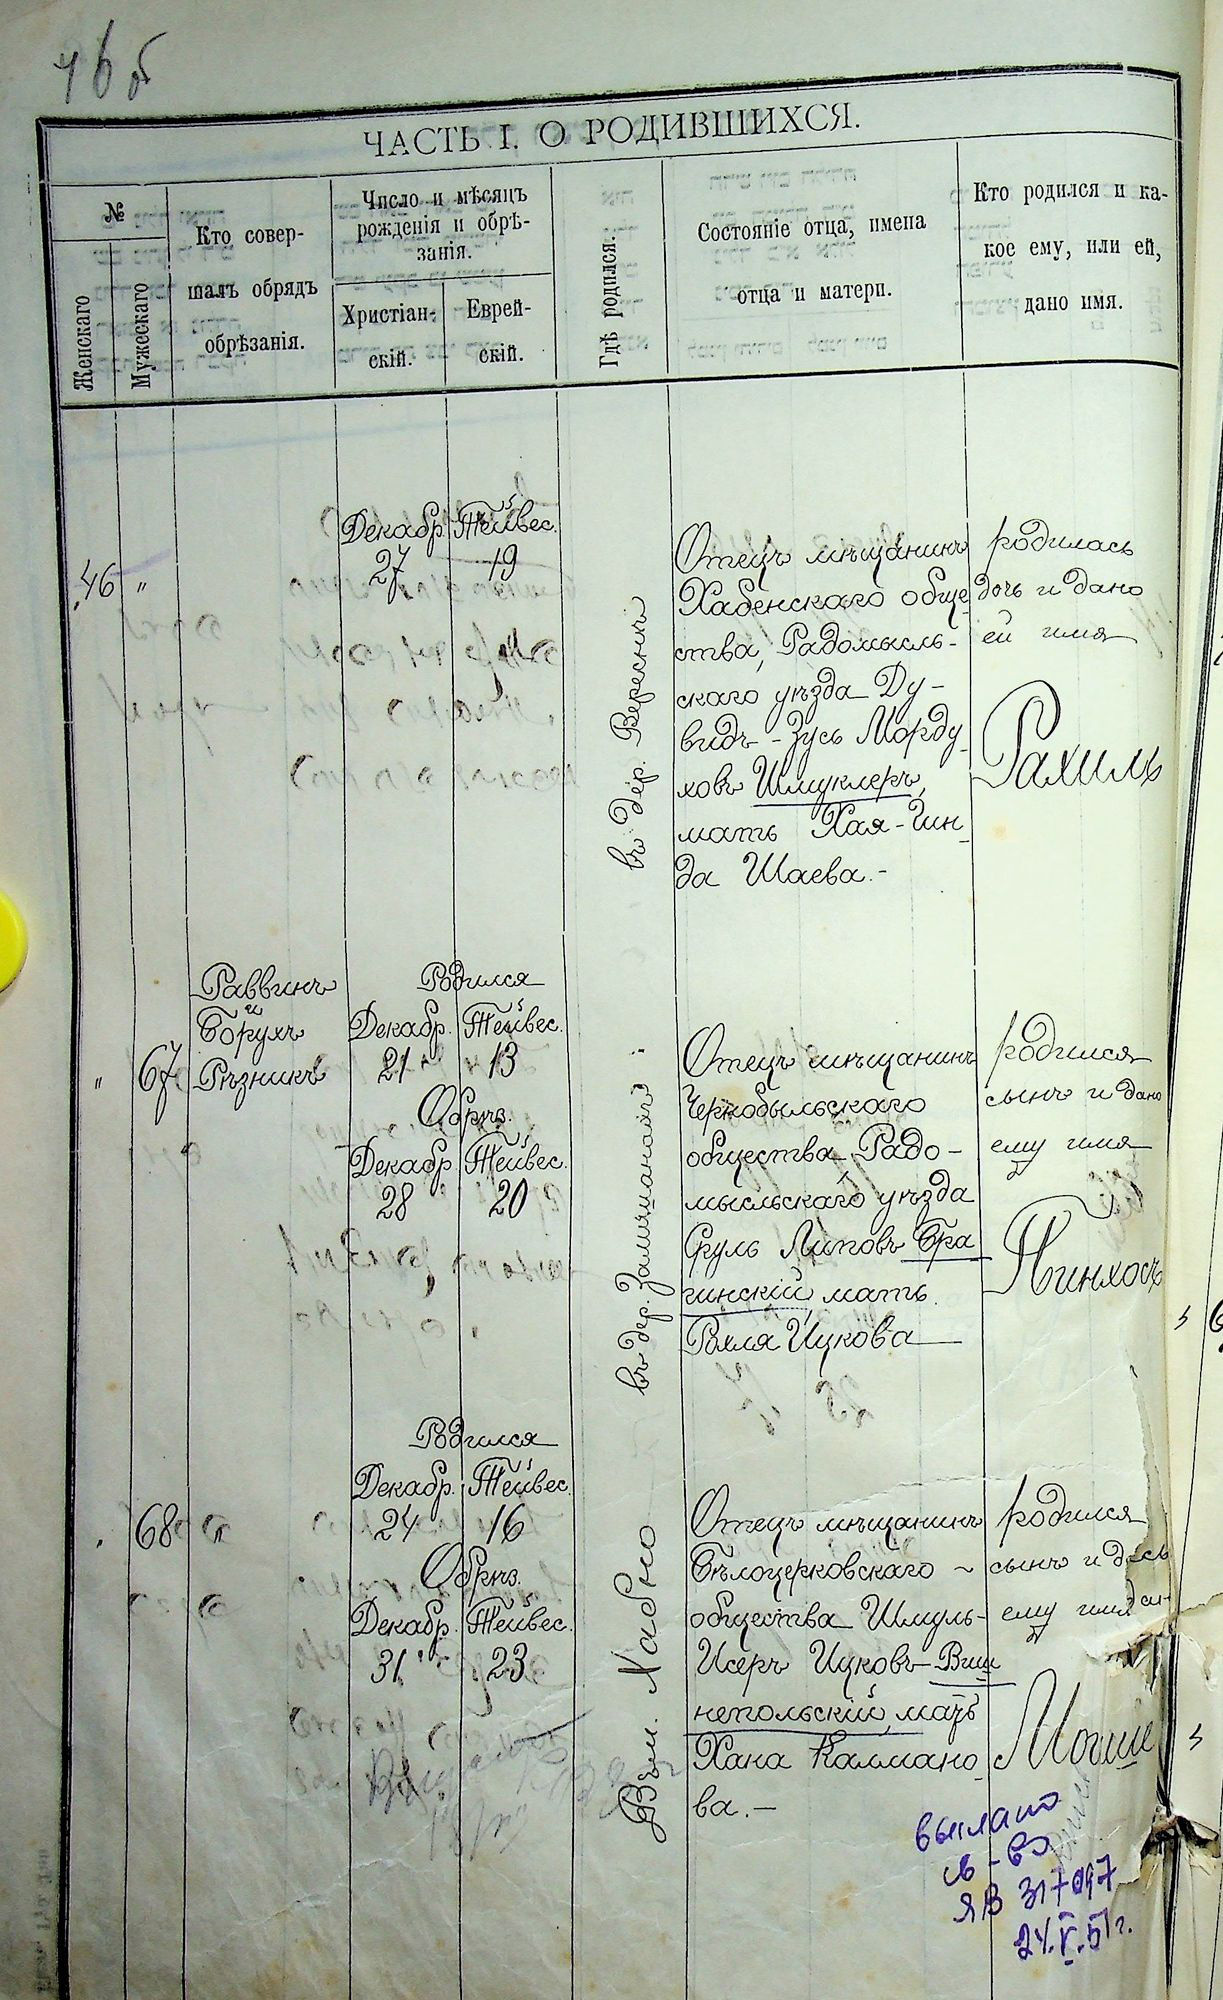 ЧАСТЬ I. О РОДИВШИХСЯ.
№
Женскаго
Мужескаго
Кто совер-
шалъ обрядъ
обрѣзанія.
Число и мѣсяцъ
рожденія и обрѣ-
занія.
Христіан-
скій.
Еврей-
скій.
Гдѣ родился.
Состояніе отца, имена
отца и матери.
Кто родился и ка-
кое ему, или ей,
дано имя.
46 "
Декабр. Тейвес.
27 19
въ дер. Вересня
Отецъ мѣщанинъ
Хабенскаго обще-
ства, Радомысль-
скаго уѣзда Ду-
видъ-Зусь Морду
ховъ Шмуклеръ,
мать Хая-Гин
да Шаева.-
родилась
дочь и дано
ей имя
Рахиль
" 67
Раввинъ
и
Борухъ
Рѣзникъ
Родился
Декабр. Тейвес.
21 13
Обрѣз.
Декабр. Тейвес.
28 20
въ дер.
Отецъ мѣщанинъ
Чернобыльскаго
общества Радо-
мысльскаго уѣзда
Сруль Липовъ Бра
гинскій, мать
Рахля Ицкова
родился
сынъ и дано
ему имя
Пинхосъ
68 "
Родился
Декабр. Тейвес.
24 16
Обрѣз.
Декабр. Тейвес.
31 23
Въ м. Хабно
Отецъ мѣщанинъ
Бѣлоцерковскаго -
общества Шмуль-
Исеръ Ицковъ Виш
непольскій, мать
Хана Калмано
ва.-
родился
сынъ и
ему имя
Мошко
выслано
св-во
ЯВ 317097
24.V.51г.